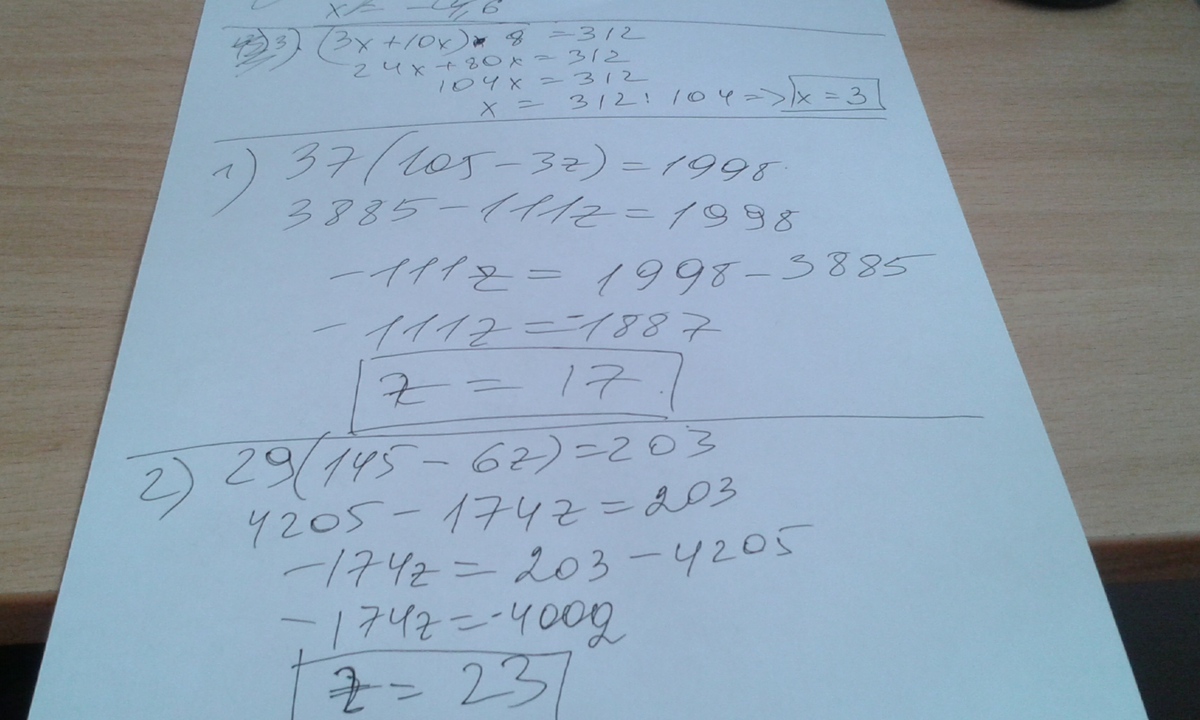 3) (3x+10x)·8 = 312
24x+80x = 312
104x = 312
x = 312:104 => x = 3
1) 37(105-3z)=1998
3885-111z=1998
-111z= 1998-3885
-111z=-1887
z = 17
2) 29(145-6z)=203
4205-174z=203
-174z=203-4205
-174z=-4002
z = 23